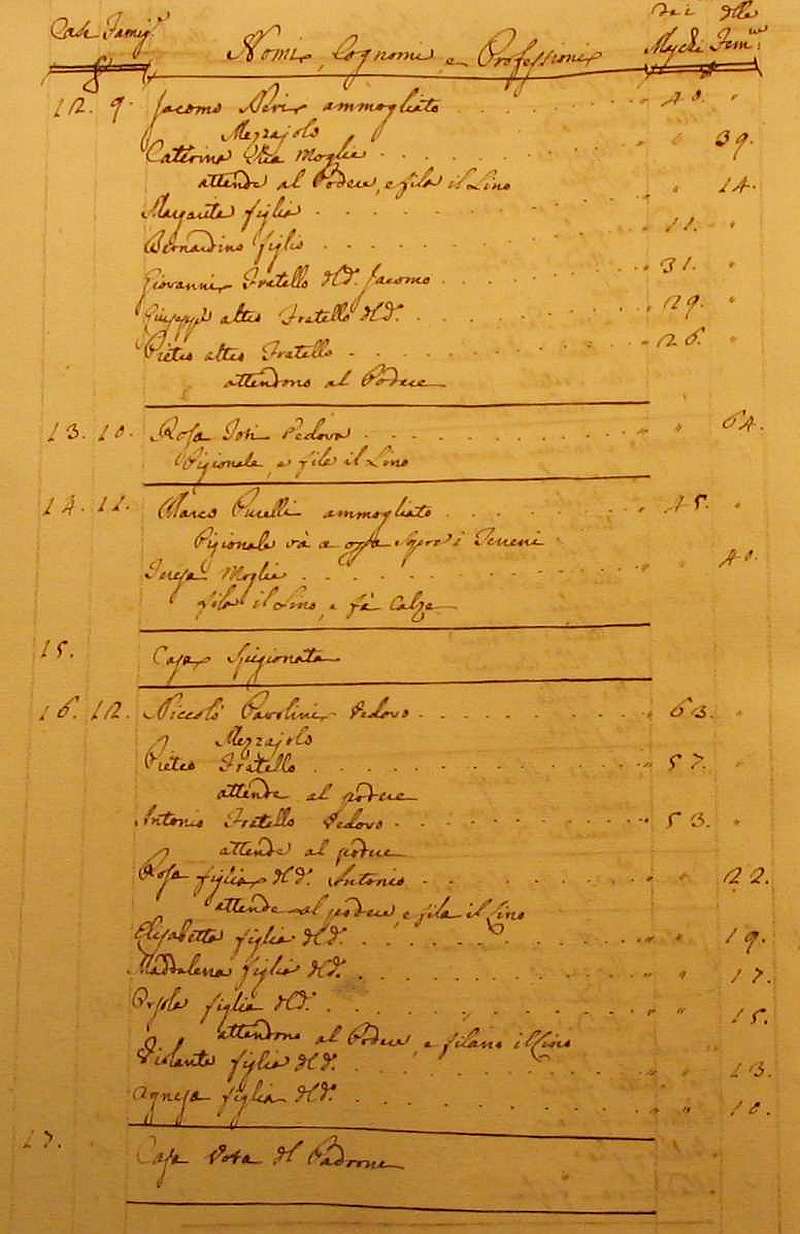 Case Famig.e Nomi, Cognomi, e Professioni dei Maschi delle Fem.e
12. 9. Jacomo Neri ammogliato 40. "
Mezzajolo
Caterina Moglie " 39.
attende al Podere, e fila il Lino
Margarita figlia " 14.
Bernardino figlio 11. "
Giovanni Fratello del d.o Jacomo 31. "
Giuseppe altro Fratello del d.o 29. "
Pietro altro Fratello 26. "
attendono al Podere
13. 10. Rosa Vedova " 64.
Pigionale, e fila il Lino
14. 11. Marco ammogliato 45. "
Pigionale và a opra sopra i Terreni
Teresa Moglie " 40.
fila il Lino, e fà Calze
15. Casa Spigionata
16. 12. Niccolò Pavolini Vedovo 63. "
Mezzajolo
Pietro Fratello 57. "
attende al podere
Antonio Fratello Vedovo 53. "
attende al podere
Rosa figlia del d.o Antonio " 22.
attende al podere, e fila il Lino
Elisabetta figlia del d.o " 19.
Maddalena figlia del d.o " 17.
Orsola figlia del d.o " 15.
attendono al Podere, e filano il Lino
Violante figlia del d.o " 13.
Agnesa figlia del d.o " 10.
17. Casa Vota del Padrone